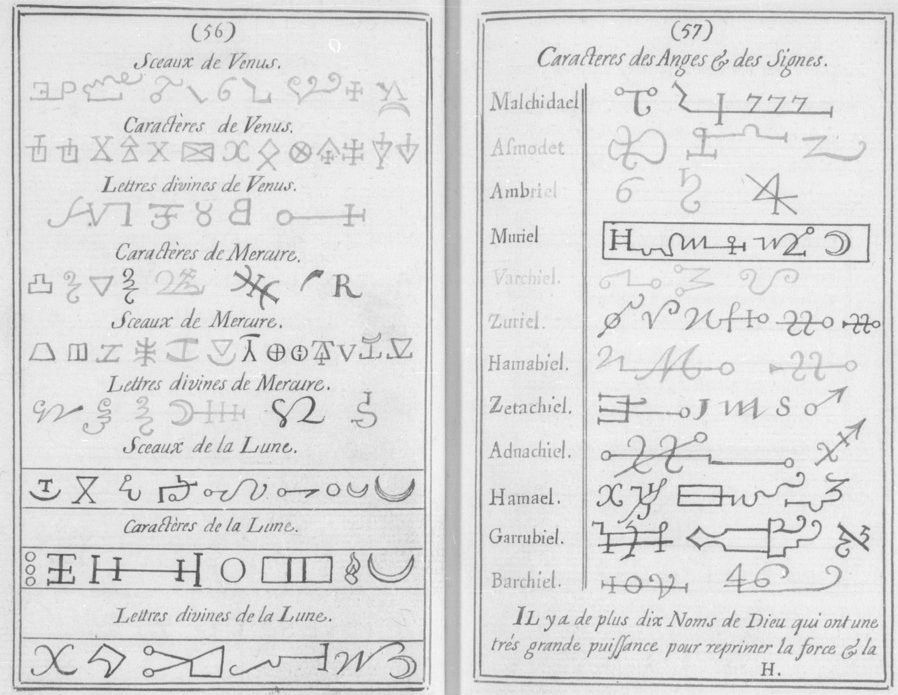 (56)
Sceaux de Venus.
Caractères de Venus.
Lettres divines de Venus.
Caractères de Mercure.
Sceaux de Mercure.
Lettres divines de Mercure.
Sceaux de la Lune.
Caractères de la Lune.
Lettres divines de la Lune.
(57)
Caracteres des Anges & des Signes.
Malchidael
Asmodet
Ambriel
Muriel
Varchiel.
Zuriel.
Hamabiel.
Zetachiel.
Adnachiel.
Hamael.
Garrubiel.
Barchiel.
IL y a de plus dix Noms de Dieu qui ont une
trés grande puissance pour reprimer la force & la
H.